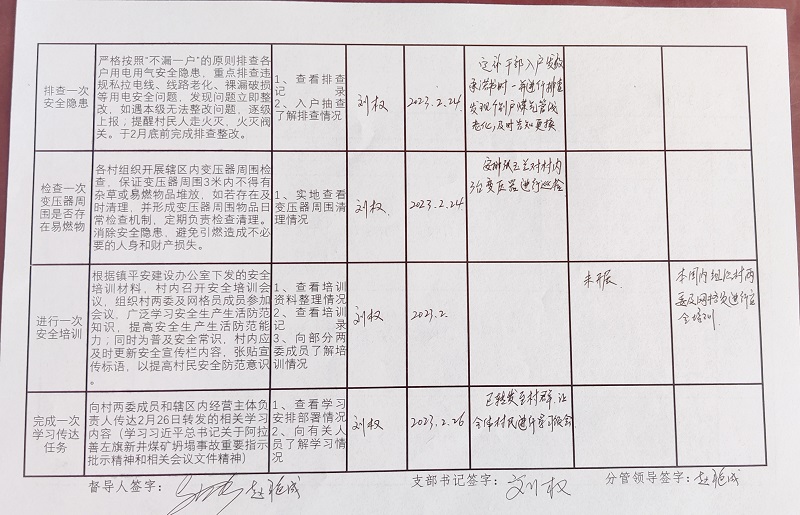 排查一次
安全隐患
严格按照“不漏一户”的原则排查各
户用电用气安全隐患，重点排查违
规私拉电线、线路老化、裸漏破损
等用电安全问题，发现问题立即整
改，如遇本级无法整改问题，逐级
上报；提醒村民人走火灭，火灭阀
关。于2月底前完成排查整改。
1、查看排查
记录
2、入户抽查
了解排查情况
刘权
2023.2.24
定补干部入户发放
承诺书时一并进行排查
发现个别户煤气管线
老化,及时告知更换
检查一次
变压器周
围是否存
在易燃物
各村组织开展辖区内变压器周围检
查，保证变压器周围3米内不得有
杂草或易燃物品堆放，如若存在及
时清理，并形成变压器周围物品日
常检查机制，定期负责检查清理。
消除安全隐患，避免引燃造成不必
要的人身和财产损失。
1、实地查看
变压器周围清
理情况
刘权
2023.2.24
对村内
3台变压器进行巡检
进行一次
安全培训
根据镇平安建设办公室下发的安全
培训材料，村内召开安全培训会
议，组织村两委及网格员成员参加
会议，广泛学习安全生产生活防范
知识，提高安全生产生活防范能
力；同时为普及安全常识，村内应
及时更新安全宣传栏内容，张贴宣
传标语，以提高村民安全防范意识
。
1、查看培训
资料整理情况
2、查看培训
记录
3、向部分两
委成员了解培
训情况
刘权
2023.2.
未开展
本周内组织村两
委及网格员进行安
全培训.
完成一次
学习传达
任务
向村两委成员和辖区内经营主体负
责人传达2月26日转发的相关学习
内容（学习习近平总书记关于阿拉
善左旗新井煤矿坍塌事故重要指示
批示精神和相关会议文件精神）
1、查看学习
安排部署情况
2、向有关人
员了解学习情
况
刘权
2023.2.26
已转发至村群,让
全体村民进行学习领会
督导人签字：
支部书记签字：刘权
分管领导签字：